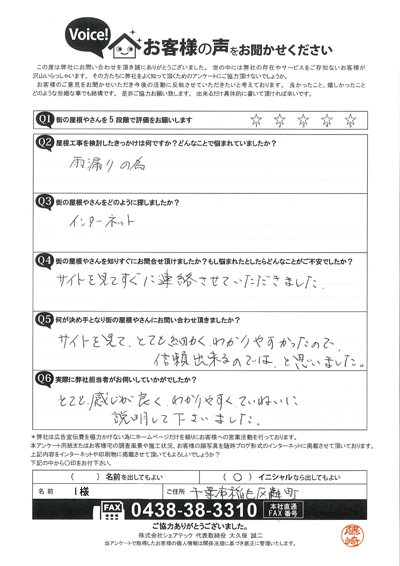 Voice!
お客様の声をお聞かせください
この度は弊社にお問い合わせを頂き誠にありがとうございました。世の中には弊社の存在やサービスをご存知ないお客様が
沢山いらっしゃいます。その方たちに弊社をよく知って頂くためのアンケートにご協力頂けないでしょうか。
お客様のご意見をお聞かせいただき今後の活動に反映させていただきたいと考えております。良かったこと、嬉しかったこと
どのような些細な事でも結構です。是非ご協力お願い致します。出来るだけ具体的に書いて頂ければ幸いです。
Q1 街の屋根やさんを5段階で評価をお願いします ☆ ☆ ☆ ☆ ☆
Q2 屋根工事を検討したきっかけは何ですか?どんなことで悩まれていましたか?
雨漏りの為
Q3 街の屋根やさんをどのように探しましたか?
インターネット
Q4 街の屋根やさんを知りすぐにお問合せ頂けましたか?もし悩まれたとしたらどんなことがご不安でしたか?
サイトを見てすぐに連絡させていただきました。
Q5 何が決め手となり街の屋根やさんにお問い合わせ頂きましたか?
サイトを見て、とても細かく、わかりやすかったので、
信頼出来るのでは、と思いました。
Q6 実際に弊社担当者がお伺いしていかがでしたか?
とても、感じが良く、わかりやすくていねいに
説明して下さいました。
＊弊社は広告宣伝費を極力かけない為にホームページだけを頼りにお客様への営業活動を行っております。
本アンケート用紙またはお客様宅の調査風景や施工状況、お客様の顔写真を随時ブログ形式のインターネットに掲載させて頂いております。
上記内容をインターネットや印刷物に掲載させて頂いてもよろしいでしょうか?
下記の中から○印をお付け下さい。
( ) 名前を出してもよい ( ○ ) イニシャルなら出してもよい
名前 I様 ご住所 千葉市稲毛区
FAX 0438-38-3310 本社直通 FAX番号
ご協力ありがとうございました。
株式会社シェアテック 代表取締役 大久保 誠二
当アンケートで取得したお客様の個人情報は関係法規に基づき厳正に管理いたします。